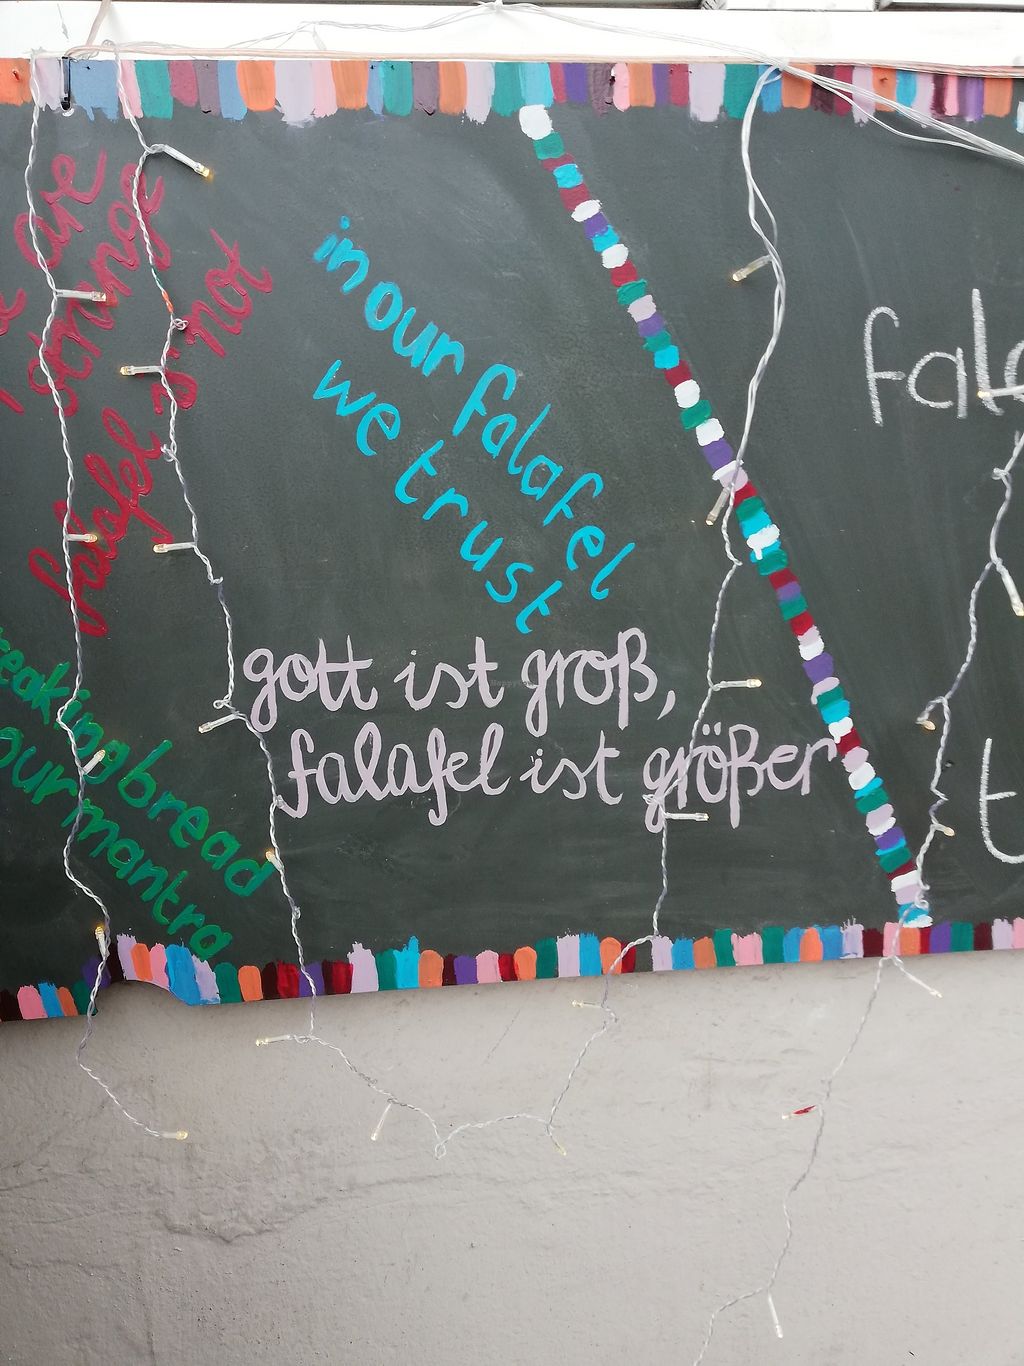 are
strange
falafel is not
in our falafel
we trust
gott ist groß,
falafel ist größer
breaking bread
our mantra
fala
t